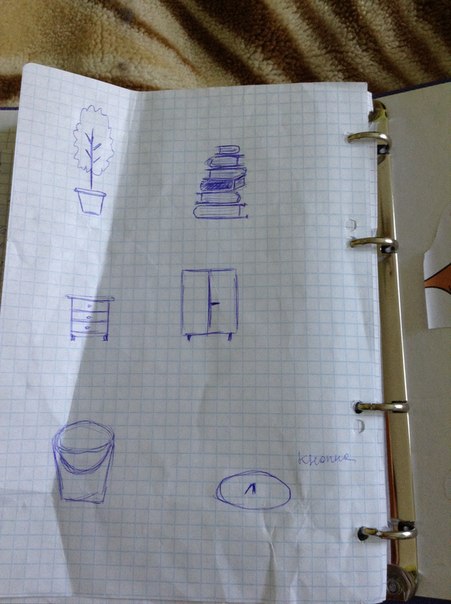 кнопка